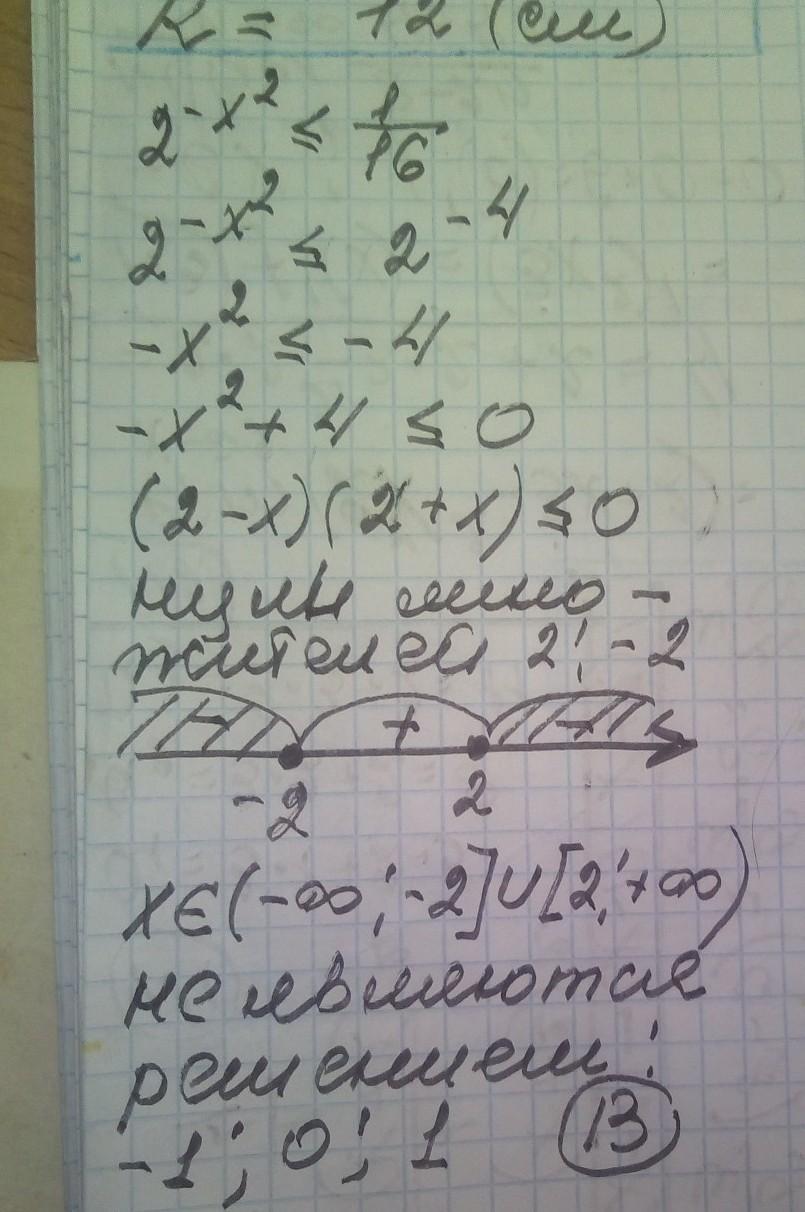 R = 12 (см)
2^{-x^2} ≤ 1/16
2^{-x^2} ≤ 2^{-4}
-x^2 ≤ -4
-x^2 + 4 ≤ 0
(2-x)(2+x) ≤ 0
нули мно-
жителей 2; -2
- + -
-2 2
x∈(-∞; -2]∪[2; +∞)
не являются
решением:
-1; 0; 1 В